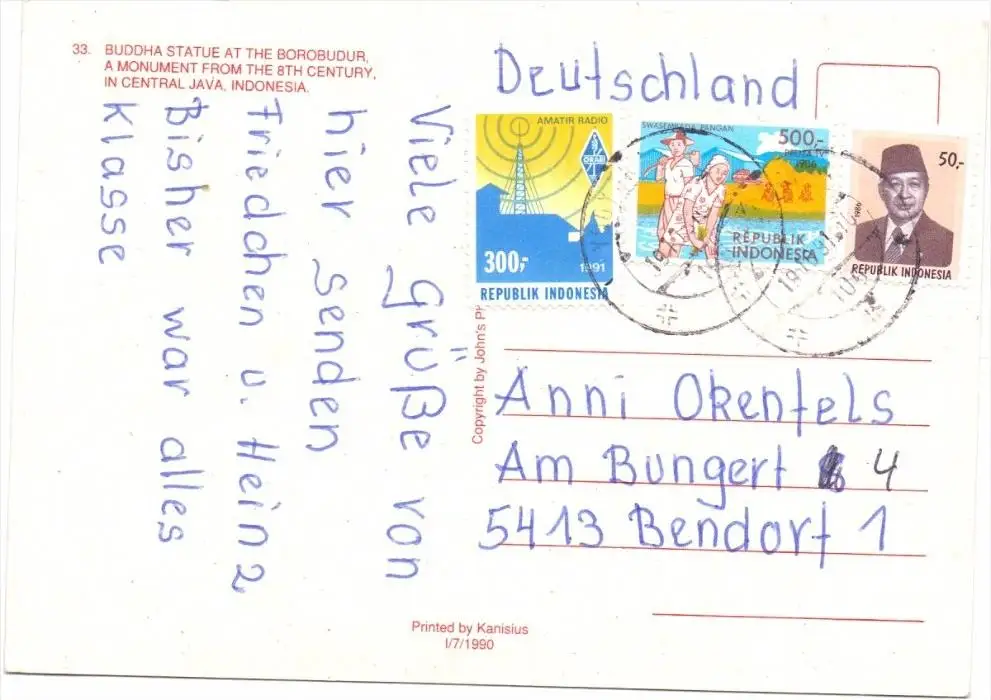 33. BUDDHA STATUE AT THE BOROBUDUR,
A MONUMENT FROM THE 8TH CENTURY,
IN CENTRAL JAVA, INDONESIA.
Viele Grüße von
hier senden
Friedchen u. Heinz
Bisher war alles
Klasse
Deutschland
AMATIR RADIO
ORARI
300,-
1991
REPUBLIK INDONESIA
SWASEMBADA PANGAN
500,-
PELITA IV
REPUBLIK
INDONESIA
50,-
REPUBLIK INDONESIA
Copyright by John's
Anni Okenfels
Am Bungert 4
5413 Bendorf 1
Printed by Kanisius
I/7/1990